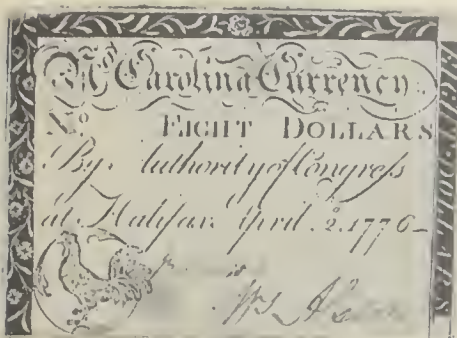 Nº Carolina Currency
Nº EIGHT DOLLARS
By Authority of Congress
at Halifax April 2. 1776
EIGHT DOLLARS